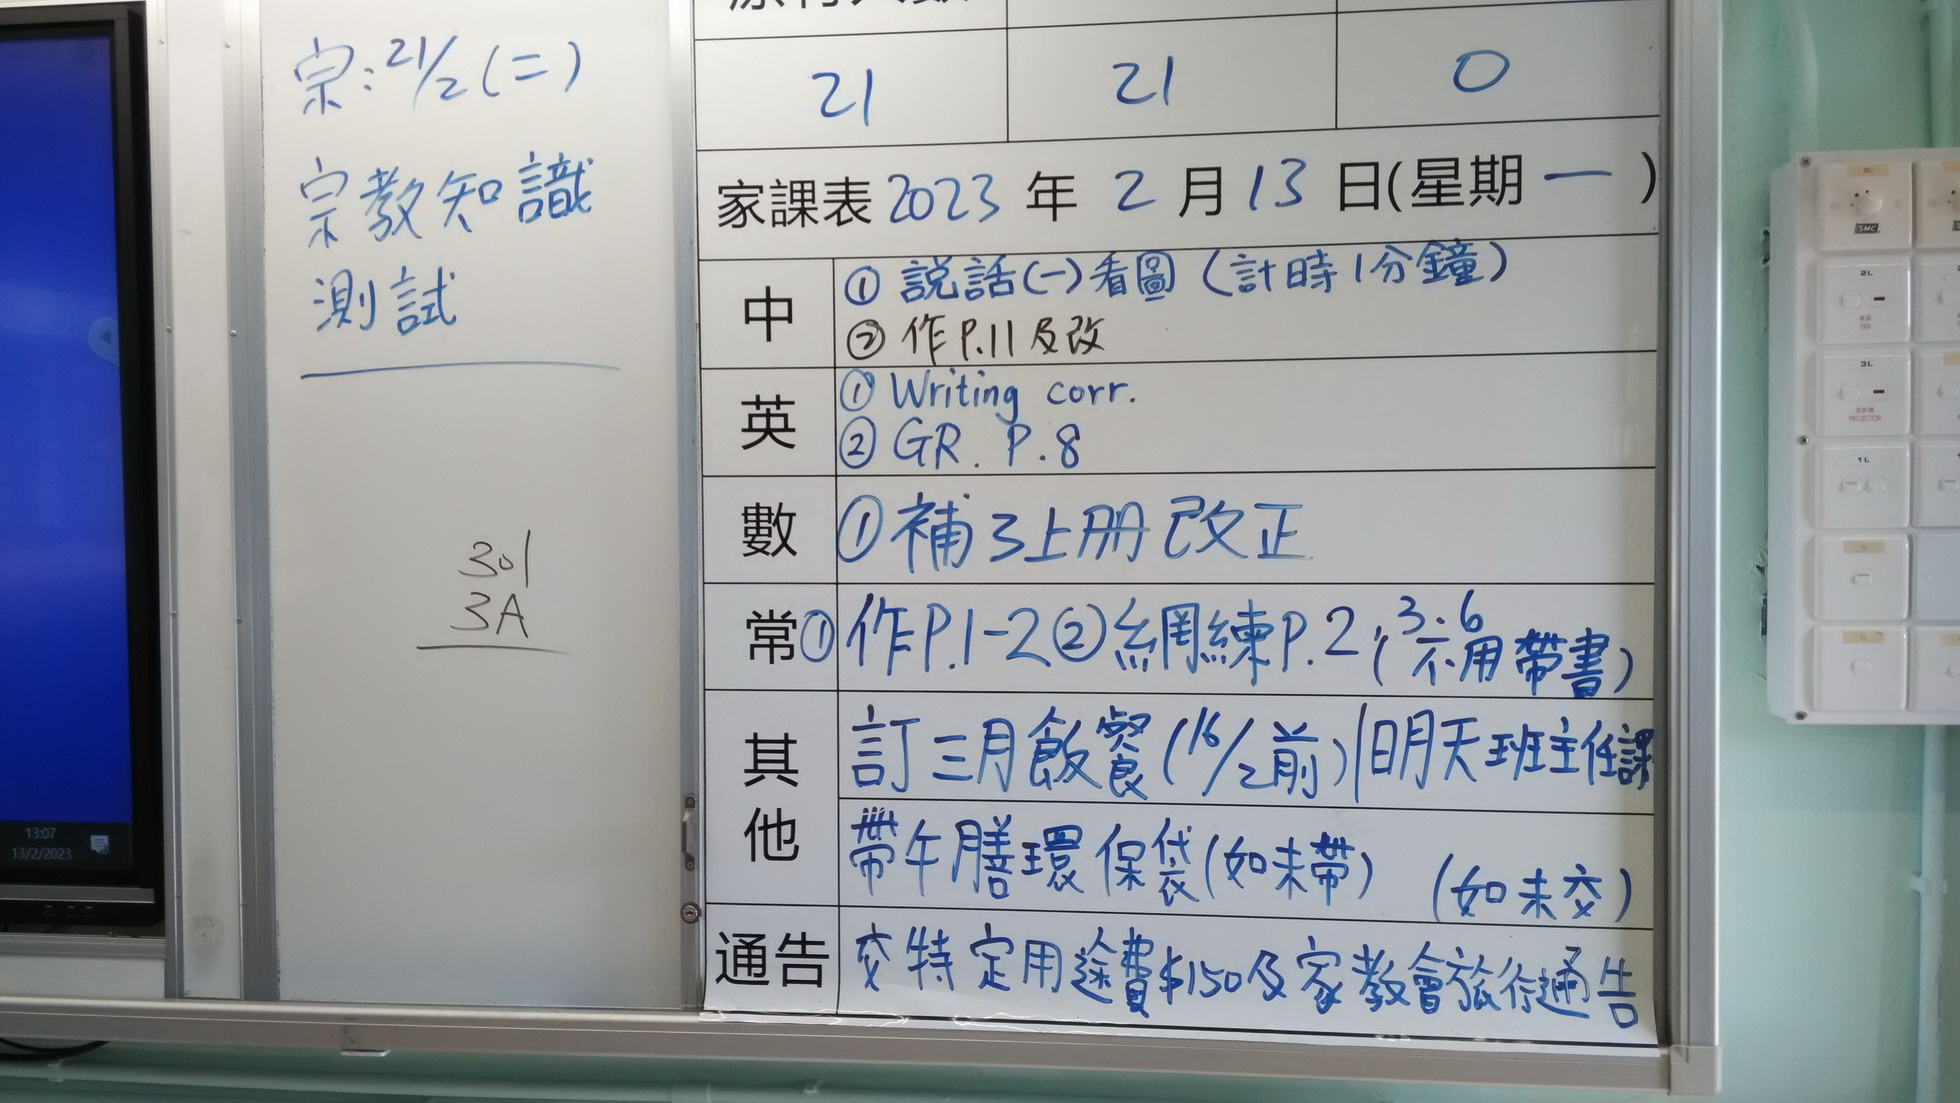 宗:21/2(二)
宗教知識
測試
301
3A
13:07
13/2/2023
21 21 0
家課表2023年2月13日(星期一)
中 ①説話(一)看圖(計時1分鐘)
②作P.11及改
英 ①Writing corr.
②GR. P.8
數 ①補3上册改正
常 ①作P.1-2②網練P.2(3.6不用帶書)
其他 訂三月飯餐(16/2前)|明天班主任課
帶午膳環保袋(如未帶) (如未交)
通告 交特定用途費$150及家教會旅行通告
SMC
2L
3L
PROJECTOR
1L